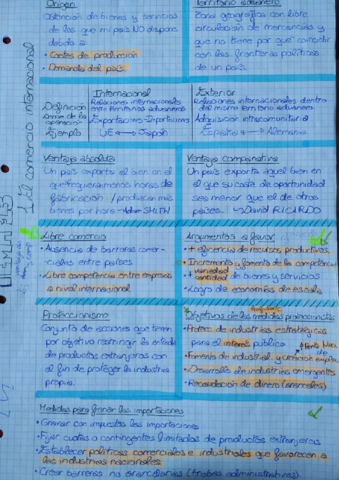 1.1 El comercio internacional
Origen
Obtención de bienes y servicios
de los que mi país NO dispone
debido a
• Costes de producción
• Demanda del país
Territorio aduanero
Zona geográfica con libre
circulación de mercancías y
que no tiene por qué coincidir
con las fronteras políticas
de un país.
Internacional
Exterior
Definición
Relaciones internacionales
entre territorios aduaneros
Relaciones internacionales dentro
del mismo territorio aduanero
de la operación
Exportaciones Importaciones
Adquisición intracomunitaria
Ejemplo
UE Japón
España Alemania
Ventaja absoluta
Un país exporta el bien en el
que requiera menos horas de
fabricación / produzca más
bienes por hora - Adam SMITH
Ventaja comparativa
Un país exporta aquel bien en
el que su coste de oportunidad
sea menor que el de otros
países. David RICARDO
Libre comercio
• Ausencia de barreras comer-
ciales entre países
• Libre competencia entre empresas
a nivel internacional
Argumentos a favor
+ eficiencia de recursos productivos
• Incremento y fomento de la competencia
+ variedad
+ cantidad de bienes y servicios
• Logro de economías de escala
Proteccionismo
Conjunto de acciones que tienen
por objetivo restringir la entrada
de productos extranjeros con
el fin de proteger la industria
propia.
Objetivos de las medidas proteccionistas
• Proteg. de industrias estratégicas
para el interés público
• Fomento de industrial. y creación empleo
• Desarrollo de industrias emergentes
• Recaudación de dinero (aranceles)
Medidas para frenar las importaciones
• Gravar con impuestos las importaciones
• Fijar cuotas o contingentes limitadas de productos extranjeros
• Establecer políticas comerciales e industriales que favorezcan a
las industrias nacionales
• Crear barreras no arancelarias (trabas administrativas).